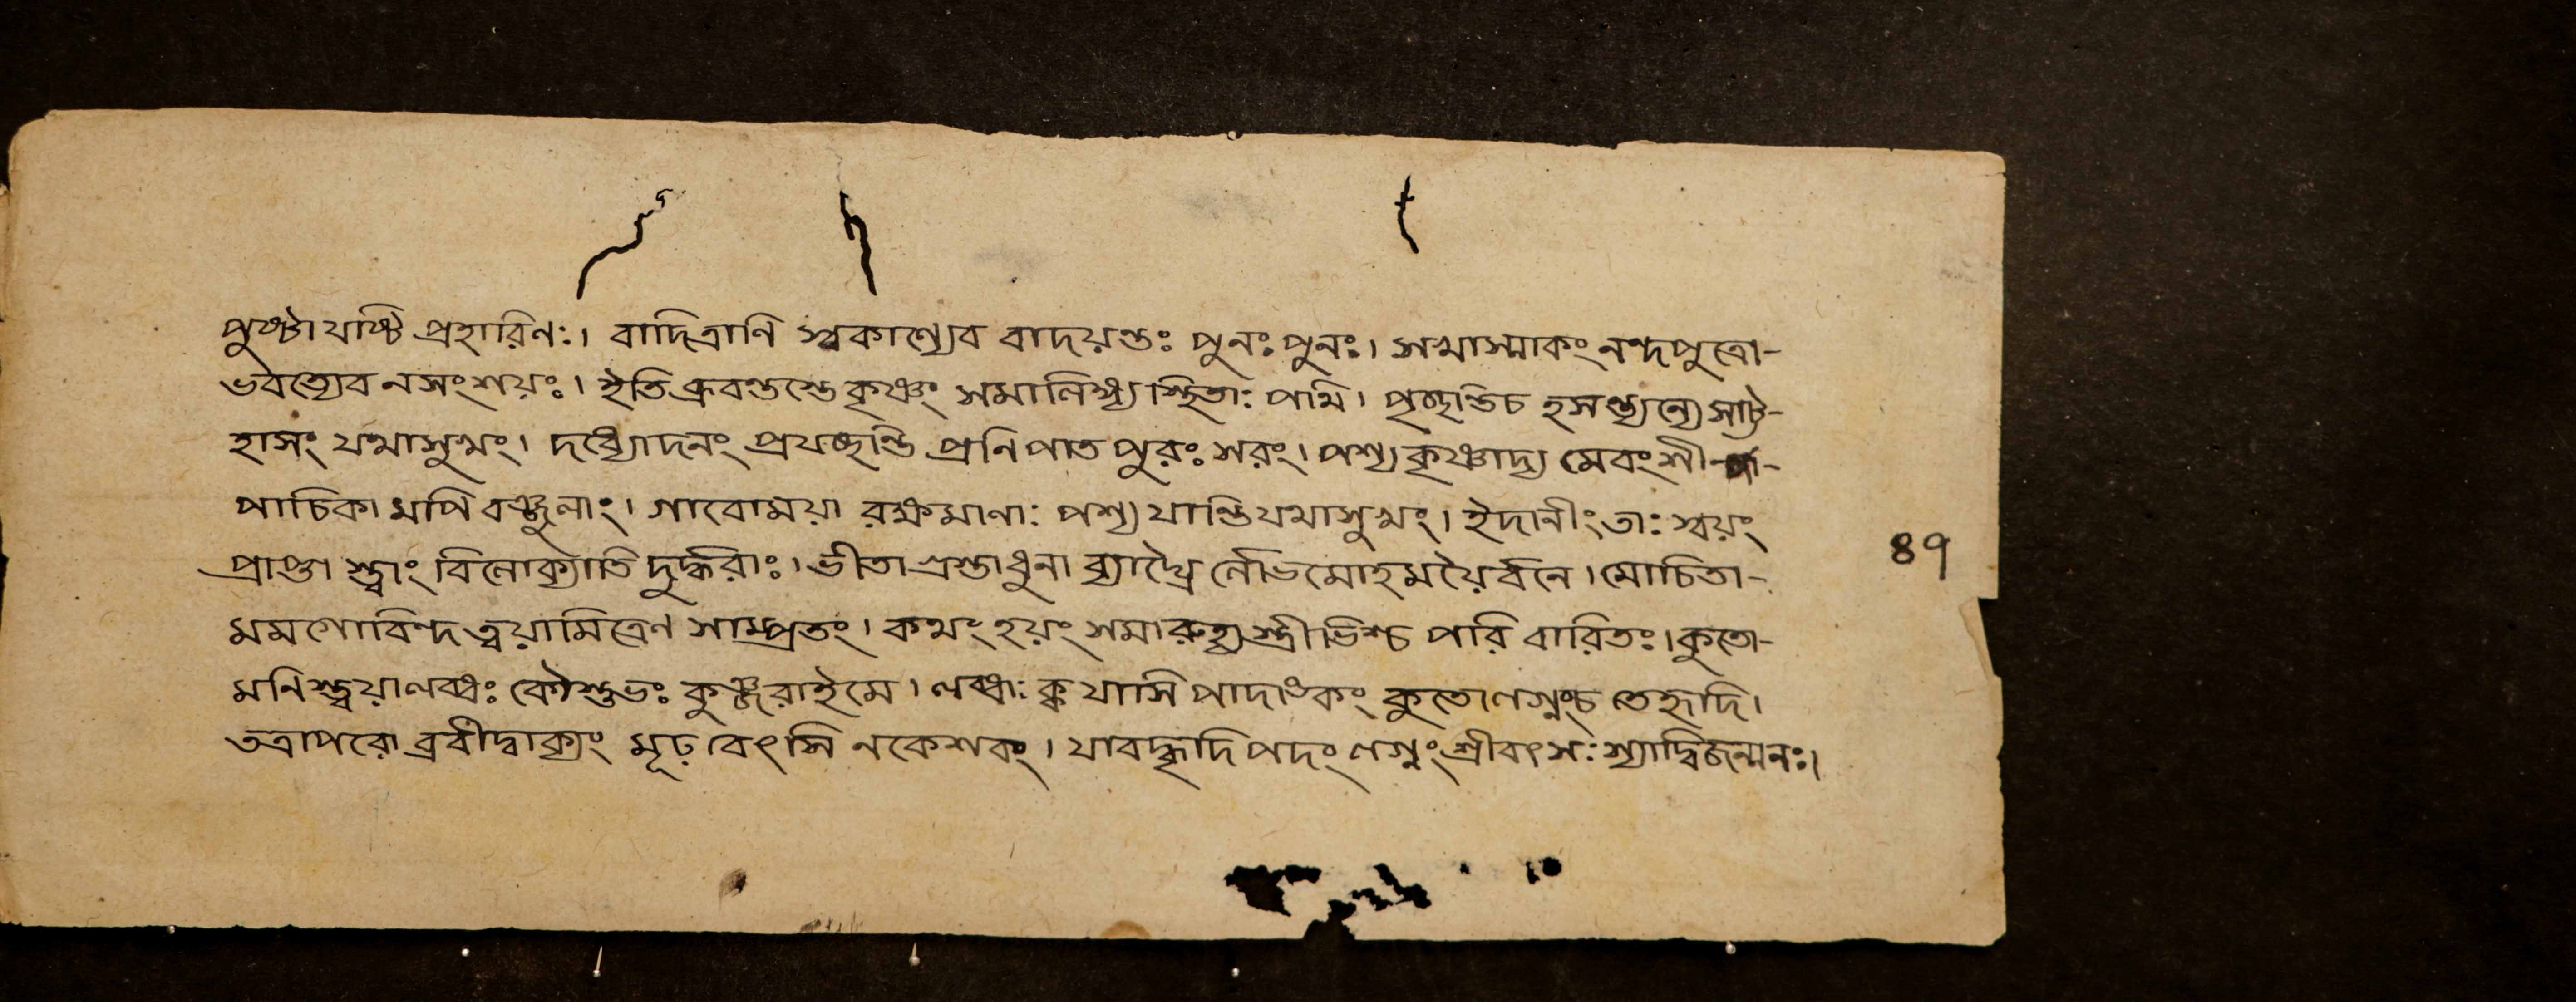 পুষ্টা যষ্টি প্রহারিনঃ। বাদিত্রাণি স্বকাণ্যেব বাদয়ন্তঃ পুনঃ পুনঃ। সখাস্মাকং নন্দপুত্রো-
ভবত্যেব নসংশয়ঃ। ইতি ব্রুবন্তস্তে কৃষ্ণং সমালিঙ্গ্য স্থিতাঃ পথি। পৃচ্ছন্তিচ হসন্ত্যন্যে সাট্ট-
হাসং যথাসুখং। দধ্যোদনং প্রযচ্ছন্তি প্রনিপাত পুরঃ সরং। পশ্য কৃষ্ণাদ্য মেবং শী-
পাচিকা মপি বঞ্জুলাং। গাবোময়া রক্ষমাণাঃ পশ্য যান্তি যথাসুখং। ইদানীং তাঃ স্বয়ং
প্রাপ্তা স্ত্বাং বিলোক্যাতি দুর্দ্ধরাঃ। ভীতা গ্রস্তাধুনা ব্যাঘ্রৈ র্লোভমোহময়ৈর্বনে। মোচিতা-
মমগোবিন্দ ত্বয়ামিত্রেণ সাম্প্রতং। কথং হয়ং সমারুহ্য স্ত্রীভিশ্চ পরি বারিতঃ। কুতো-
মনিস্ত্বয়ালব্ধঃ কৌস্তুভঃ কুঞ্জরাইমে। লব্ধাঃ ক্ক যাসি পাদাঙ্কং কুতোলগ্নংচ তেহৃদি।
তত্রাপরো ব্রবীদ্বাক্যং মূঢ় বেৎসি নকেশবং। যাবদ্ধৃদি পদং লগ্নং শ্রীবৎসঃ স্যাদ্দ্বিজন্মনঃ।
৪৭